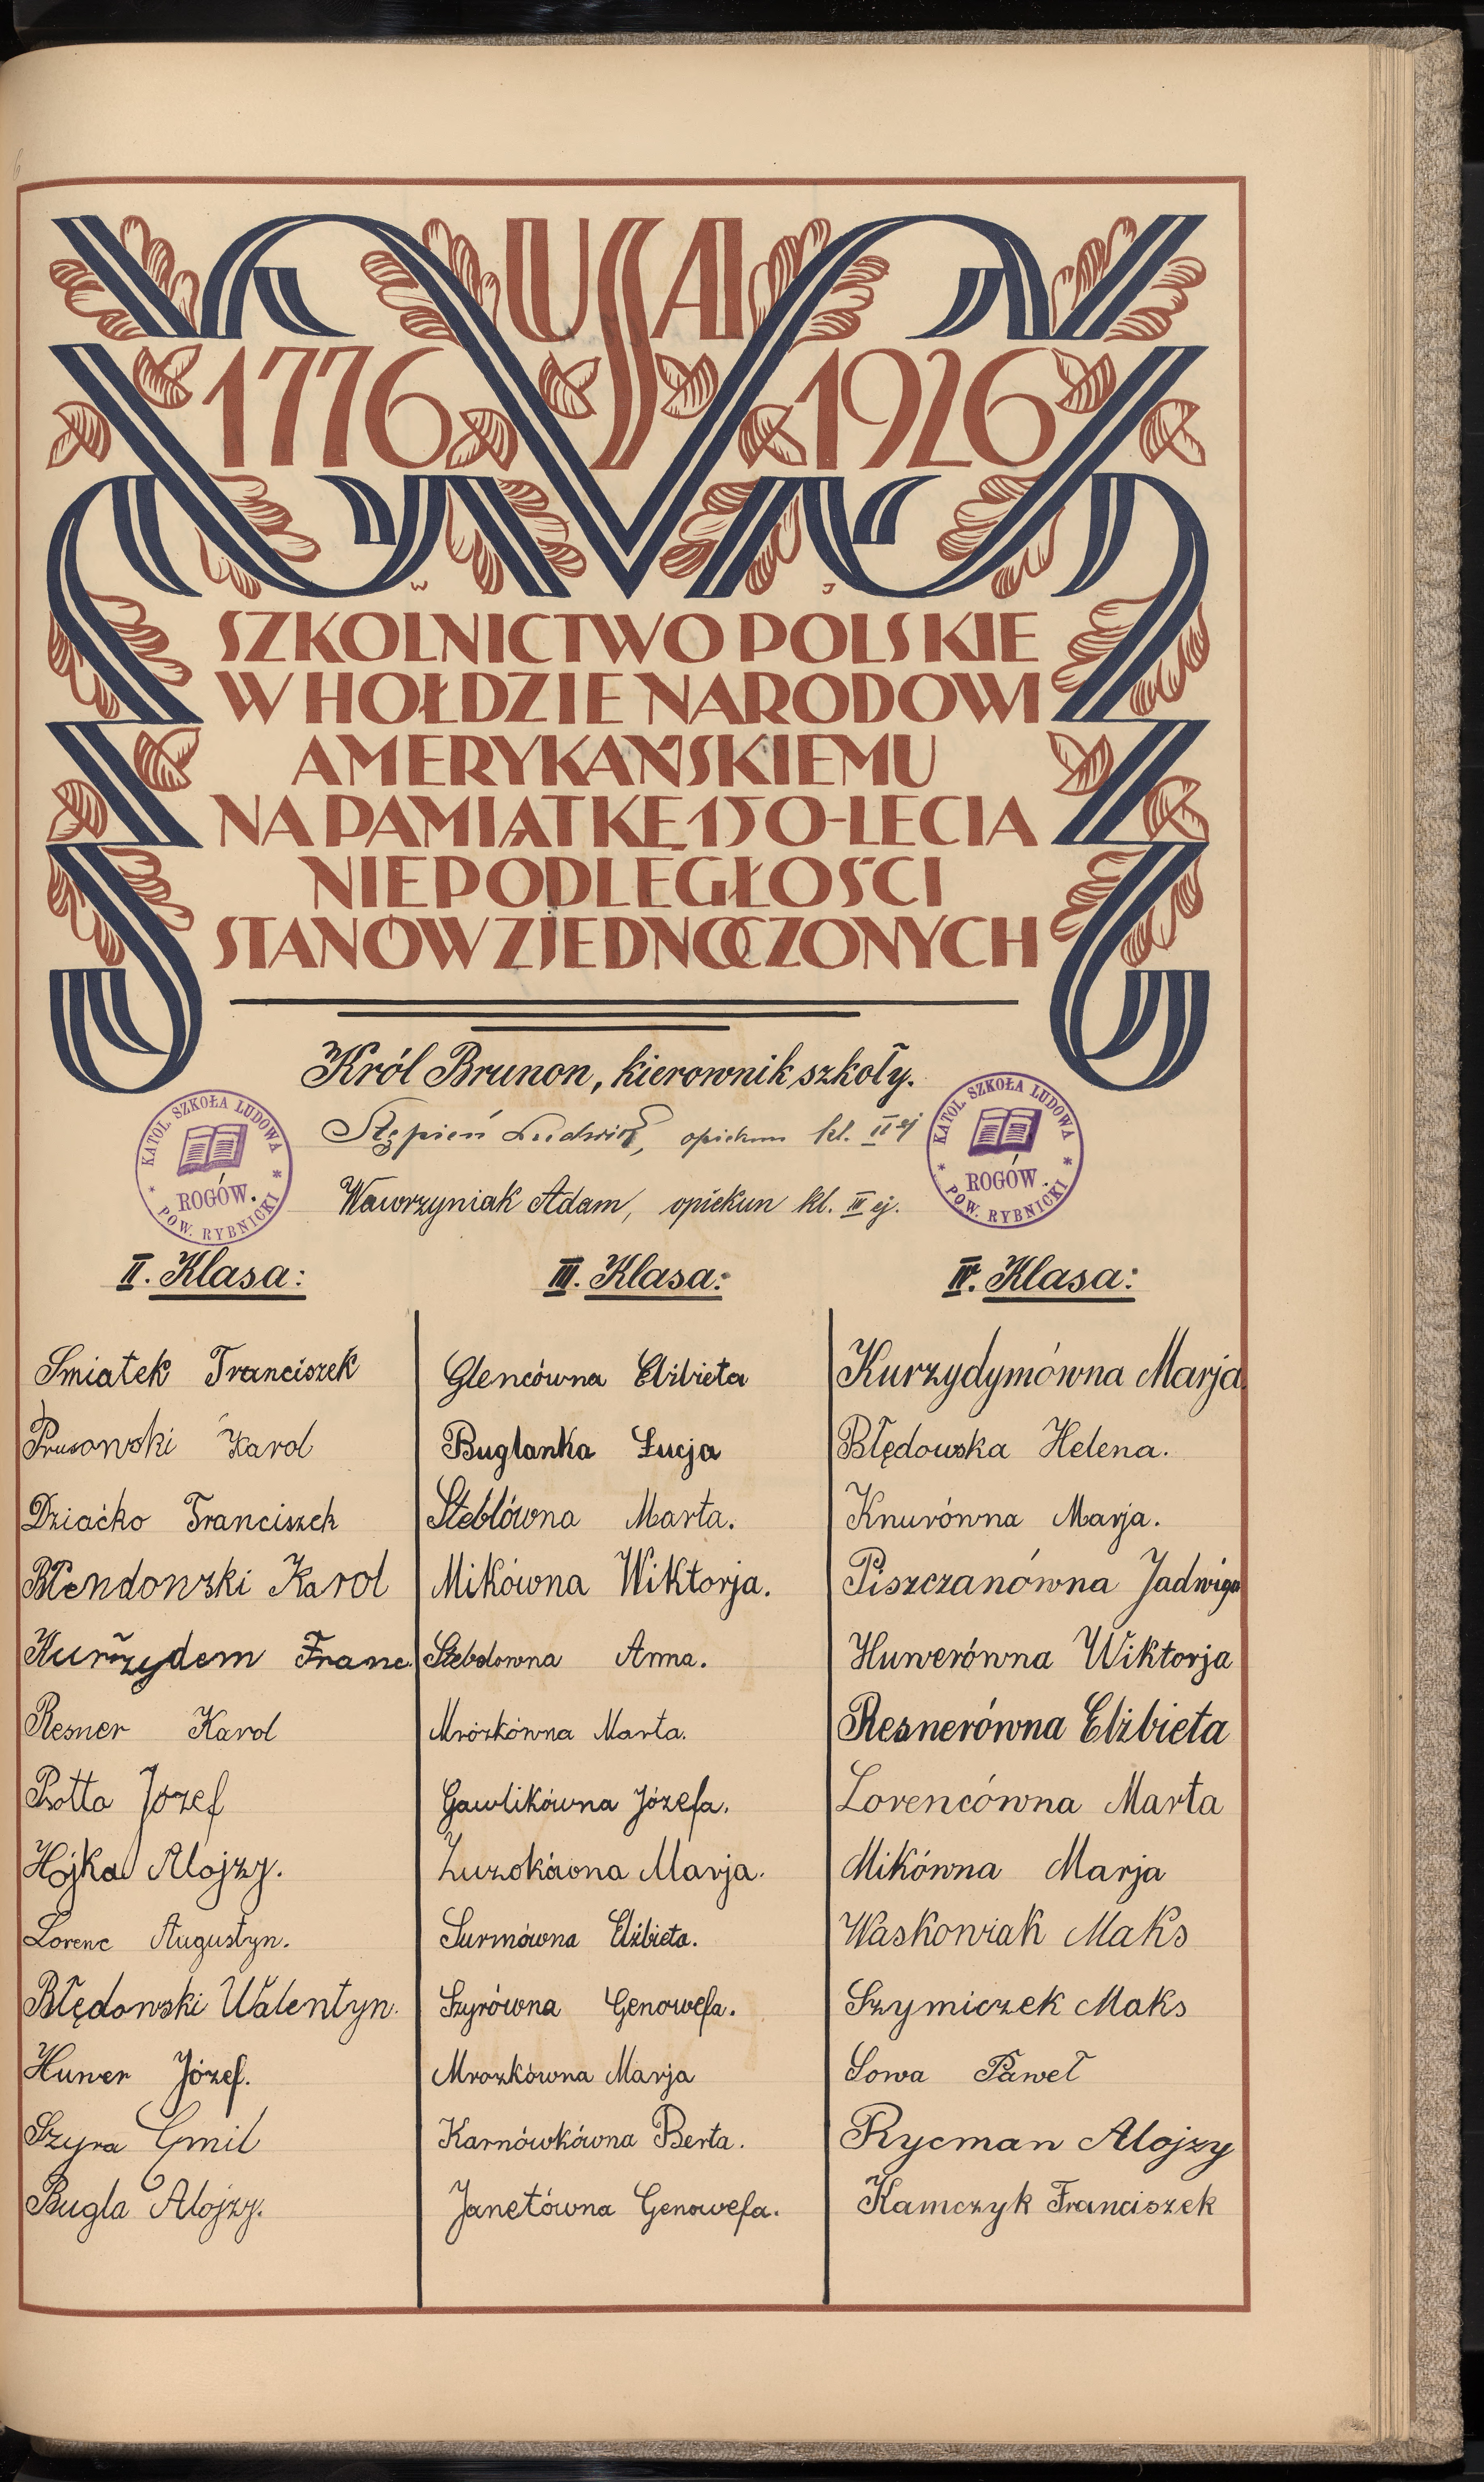 USA
1776 1926
W J
SZKOLNICTWO POLSKIE
W HOŁDZIE NARODOWI
AMERYKAŃSKIEMU
NA PAMIĄTKĘ 150-LECIA
NIEPODLEGŁOŚCI
STANÓW ZJEDNOCZONYCH
Król Brunon, kierownik szkoły.
Stępień Ludwik, opiekun kl. II ej
Wawrzyniak Adam, opiekun kl. III ej.
KATOL. SZKOŁA LUDOWA
ROGÓW.
* POW. RYBNICKI *
KATOL. SZKOŁA LUDOWA
ROGÓW.
* POW. RYBNICKI *
II. Klasa:
Smiatek Franciszek
Prusowski Karol
Dziaćko Franciszek
Błendowski Karol
Kurzydem Franc.
Resner Karol
Psotta Józef
Hojka Alojzy.
Lorenc Augustyn.
Błędowski Walentyn.
Huwer Józef.
Szyra Emil
Bugla Alojzy.
III. Klasa:
Glencówna Elżbieta
Buglanka Łucja
Steblówna Marta.
Mikówna Wiktorja.
Stebelowna Anna.
Mrózkówna Marta.
Gawlikówna Józefa.
Luzokówna Marja.
Surmówna Elżbieta.
Szyrówna Genowefa.
Mrozkówna Marja
Karnówkówna Berta.
Janetówna Genowefa.
IV. Klasa:
Kurzydymówna Marja.
Błędowska Helena.
Knurówna Marja.
Piszczanówna Jadwiga
Huwerówna Wiktorja
Resnerówna Elżbieta
Lorencówna Marta
Mikówna Marja
Waskowiak Maks
Szymiczek Maks
Sowa Paweł
Rycman Alojzy
Kamczyk Franciszek